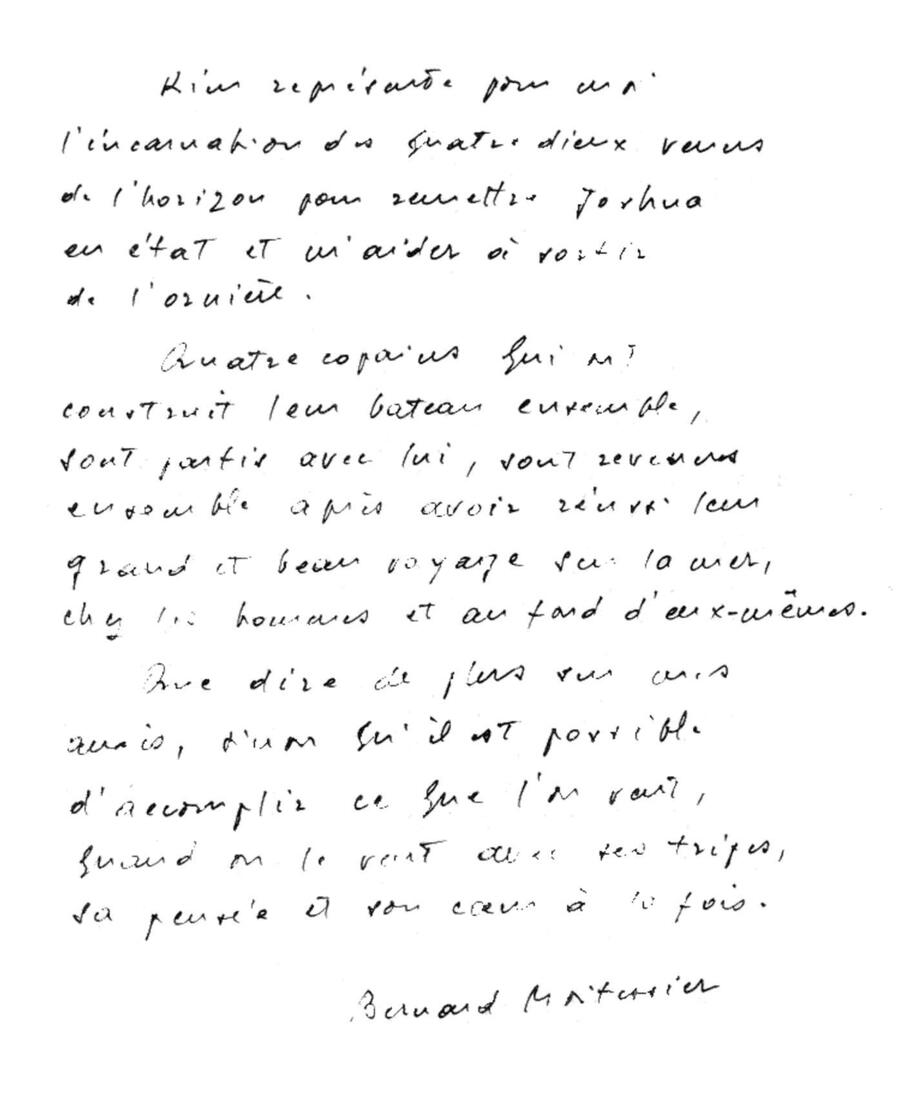 Kim représente pour moi
l'incarnation des quatre dieux venus
de l'horizon pour remettre Joshua
en état et m'aider à sortir
de l'ornière.
Quatre copains qui ont
construit leur bateau ensemble,
sont partis avec lui, sont revenus
ensemble après avoir réussi leur
grand et beau voyage sur la mer,
chez les hommes et au fond d'eux-mêmes.
Que dire de plus sur mes
amis, sinon qu'il est possible
d'accomplir ce que l'on veut,
quand on le veut avec ses tripes,
sa pensée et son cœur à la fois.
Bernard Moitessier